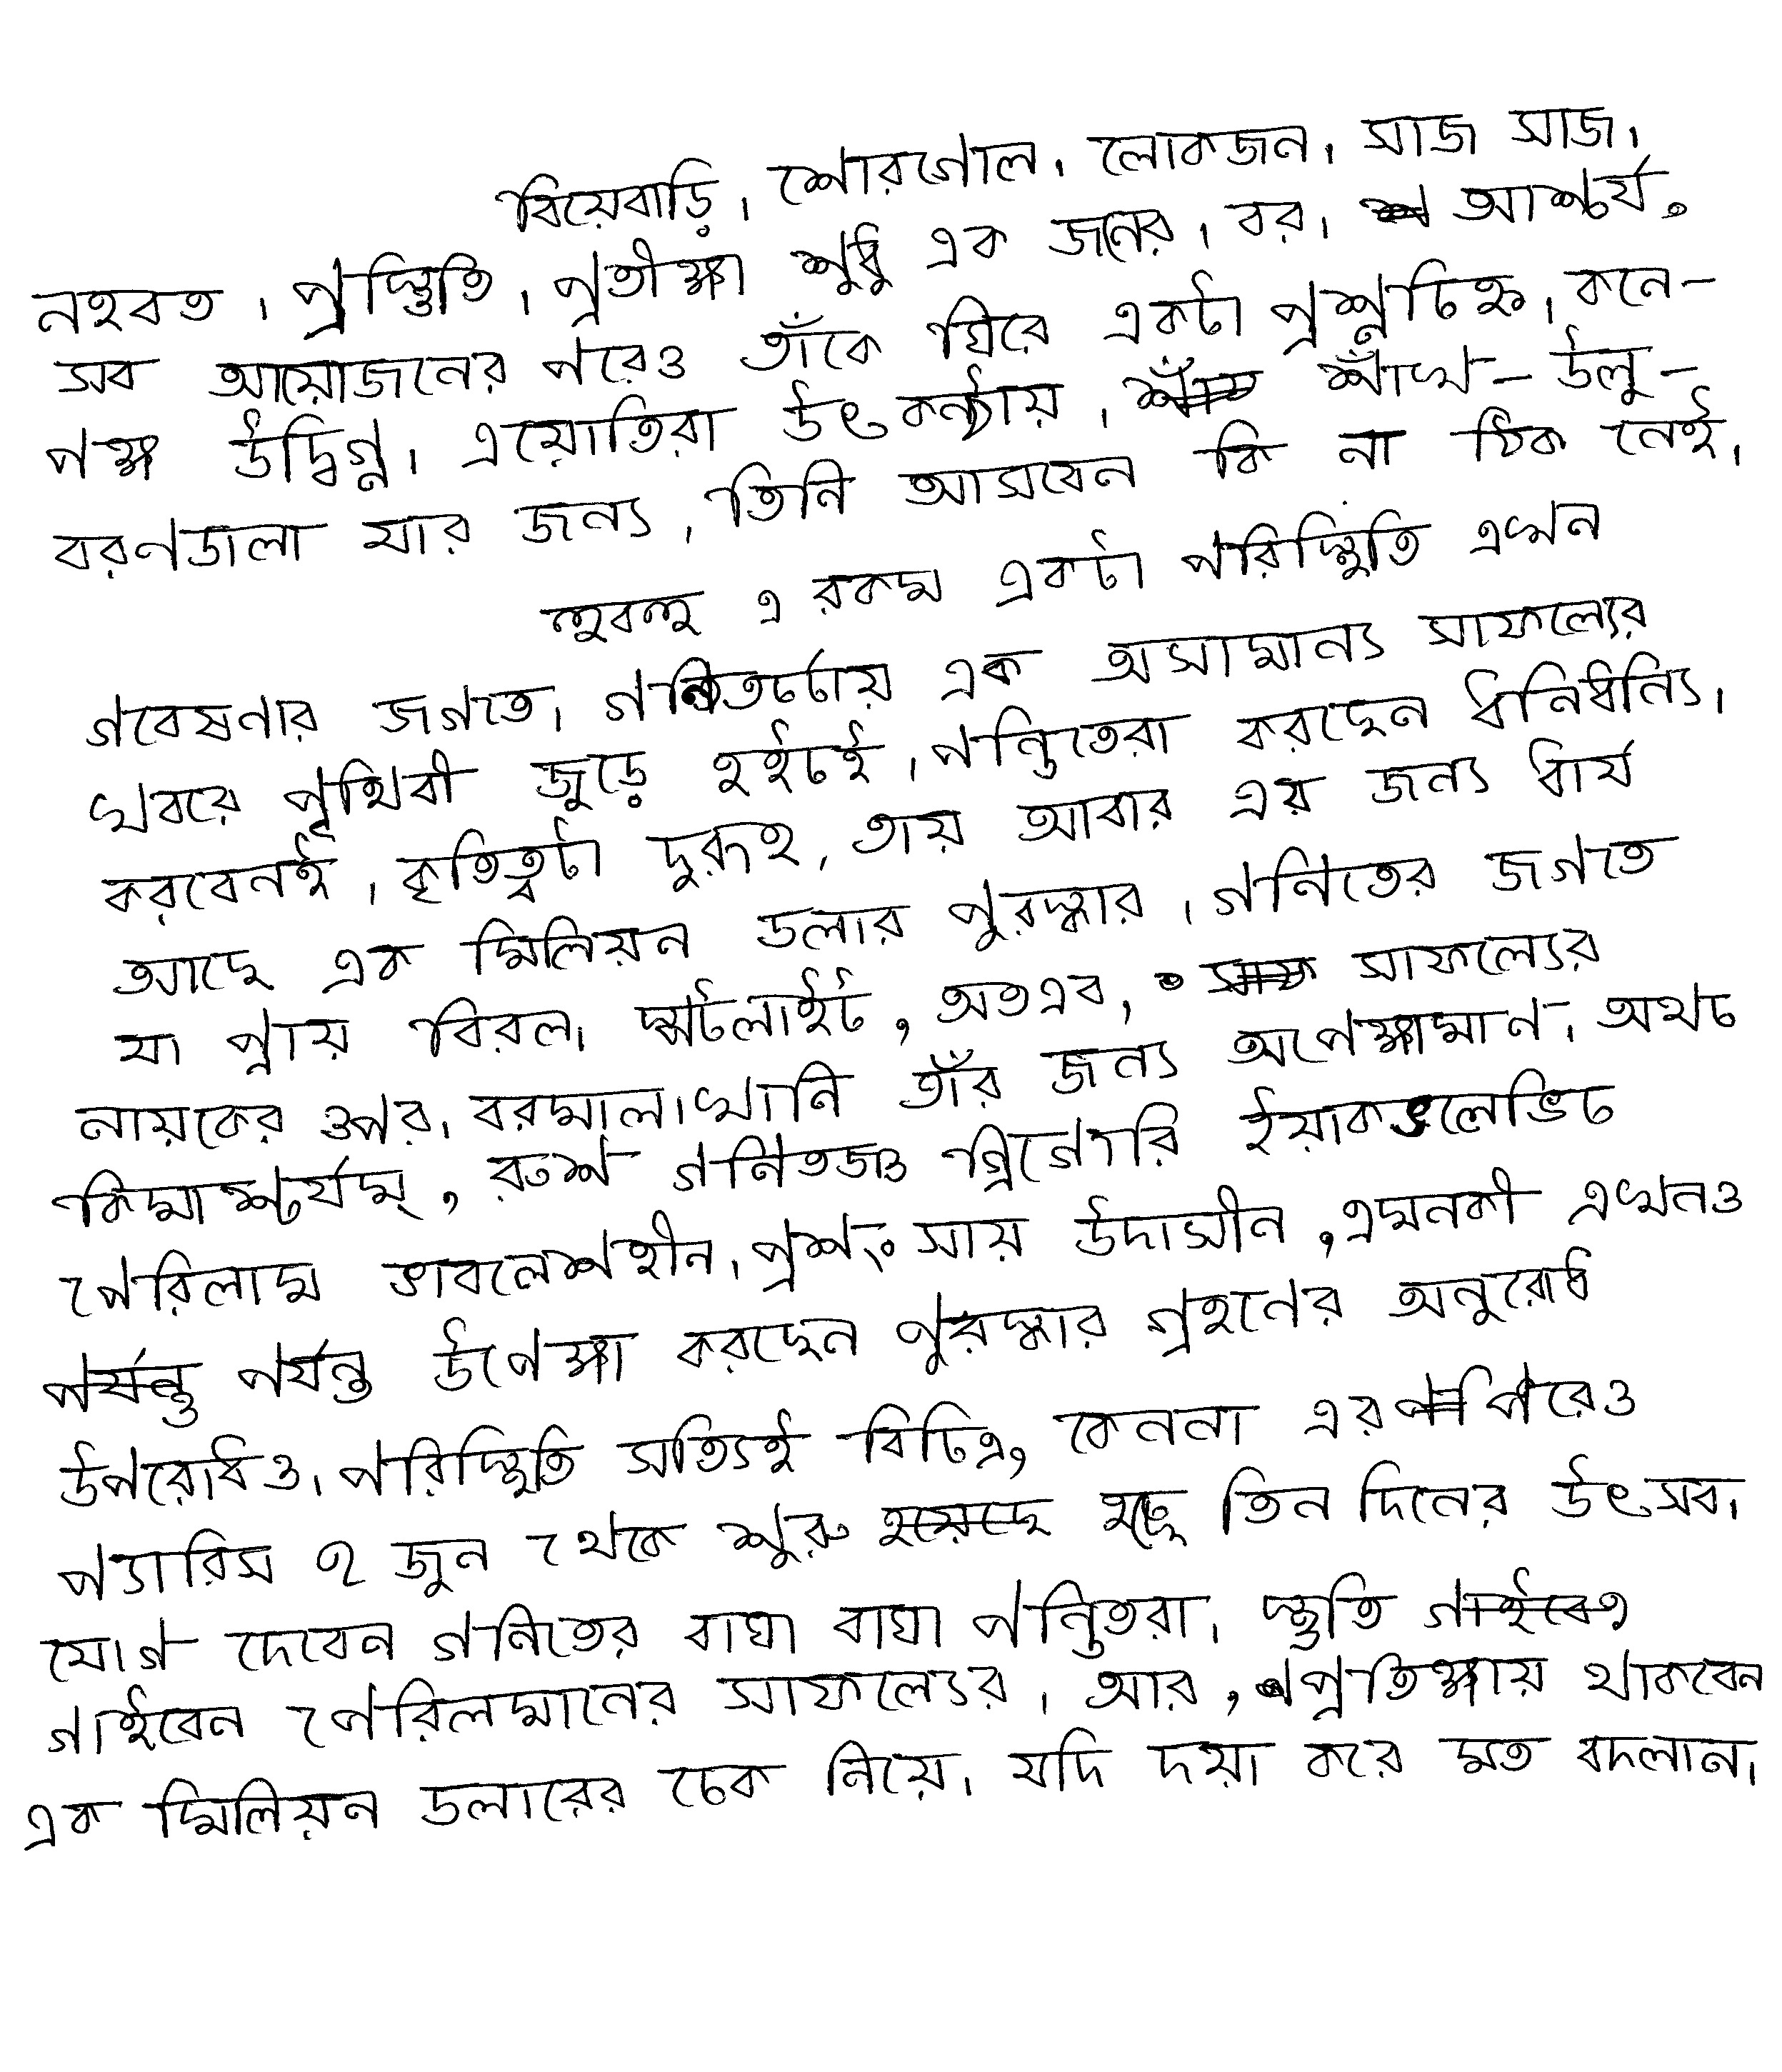 বিয়েবাড়ি। শোরগোল। লোকজন। সাজ সাজ।
নহবত। প্রস্তুতি। প্রতীক্ষা শুধু এক জনের। বর। আশ্চর্য,
সব আয়োজনের পরেও তাঁকে ঘিরে একটা প্রশ্নচিহ্ন। কনে-
পক্ষ উদ্বিগ্ন। এয়োতিরা উৎকন্ঠায়। শাঁখ-উলু-
বরণডালা যার জন্য, তিনি আসবেন কি না ঠিক নেই।
হুবহু এ রকম একটা পরিস্থিতি এখন
গবেষনার জগতে। গনিতচর্চায় এক অসামান্য সাফল্যের
খবরে পৃথিবী জুড়ে হইচই। পন্ডিতেরা করছেন ধ্বনিধ্বনি।
করবেনই। কৃতিত্বটা দুরূহ, তায় আবার এর জন্য ধার্য
আছে এক মিলিয়ন ডলার পুরস্কার। গনিতের জগতে
যা প্রায় বিরল। স্পটলাইট, অতএব, সাফল্যের
নায়কের ওপর। বরমালাখানি তাঁর জন্য অপেক্ষামাণ। অথচ
কিমাশ্চর্যম্, রুশ গনিতজ্ঞ গ্রিগোরি ইয়াকভলেভিচ
পেরিলাম ভাবলেশহীন। প্রশংসায় উদাসীন, এমনকী এখনও
পর্যন্ত উপেক্ষা করছেন পুরস্কার গ্রহনের অনুরোধ
উপরোধও। পরিস্থিতি সত্যিই বিচিত্র, কেননা এর পরেও
প্যারিস ২ জুন থেকে শুরু হচ্ছে তিন দিনের উৎসব।
যোগ দেবেন গনিতের বাঘা বাঘা পন্ডিতরা। স্তুতি
গাইবেন পেরিলমানের সাফল্যের। আর, প্রতিক্ষায় থাকবেন
এক মিলিয়ন ডলারের চেক নিয়ে। যদি দয়া করে মত বদলান।